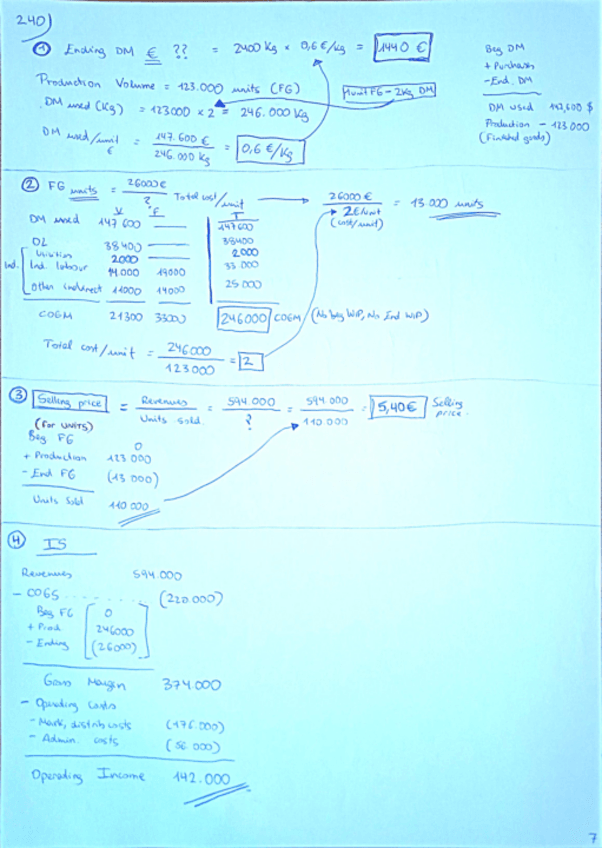 240)
① Ending DM € ?? = 2400 Kg × 0,6 €/Kg = 1440 €
Beg DM
+ Purchases
- End. DM
DM used 147,600 $
Production - 123.000
(Finished goods)
Production Volume = 123.000 units (FG)
DM used (Kg) = 123000 × 2 = 246.000 Kg
1 unit FG - 2Kg DM
DM used/unit € = 147.600 € / 246.000 Kg = 0,6 €/Kg
② FG units = 26000 € / ? Total cost/unit → 26000 € / 2€/unit (cost/unit) = 13 000 units
V F T
DM used 147 600 147600
DL 38400 38400
2000 2000
Ind. Ind. labour 14.000 19000 33 000
Other indirect 11000 14000 25 000
COGM 21300 33000 246000 COGM (No beg WIP, No End WIP)
Total cost/unit = 246000 / 123.000 = 2
③ Selling price = Revenues / Units sold = 594.000 / ? = 594.000 / 110 000 = 5,40€ Selling price.
(For UNITS)
Beg FG 0
+ Production 123 000
- End FG (13 000)
Units Sold 110 000
④ IS
Revenues 594.000
- COGS . . . . . . . . (220.000)
Beg FG 0
+ Prod. 246000
- Ending (26000)
Gross Margin 374.000
- Operating Costs
- Mark, distrib costs (176.000)
- Admin. costs (56.000)
Operating Income 142.000
7